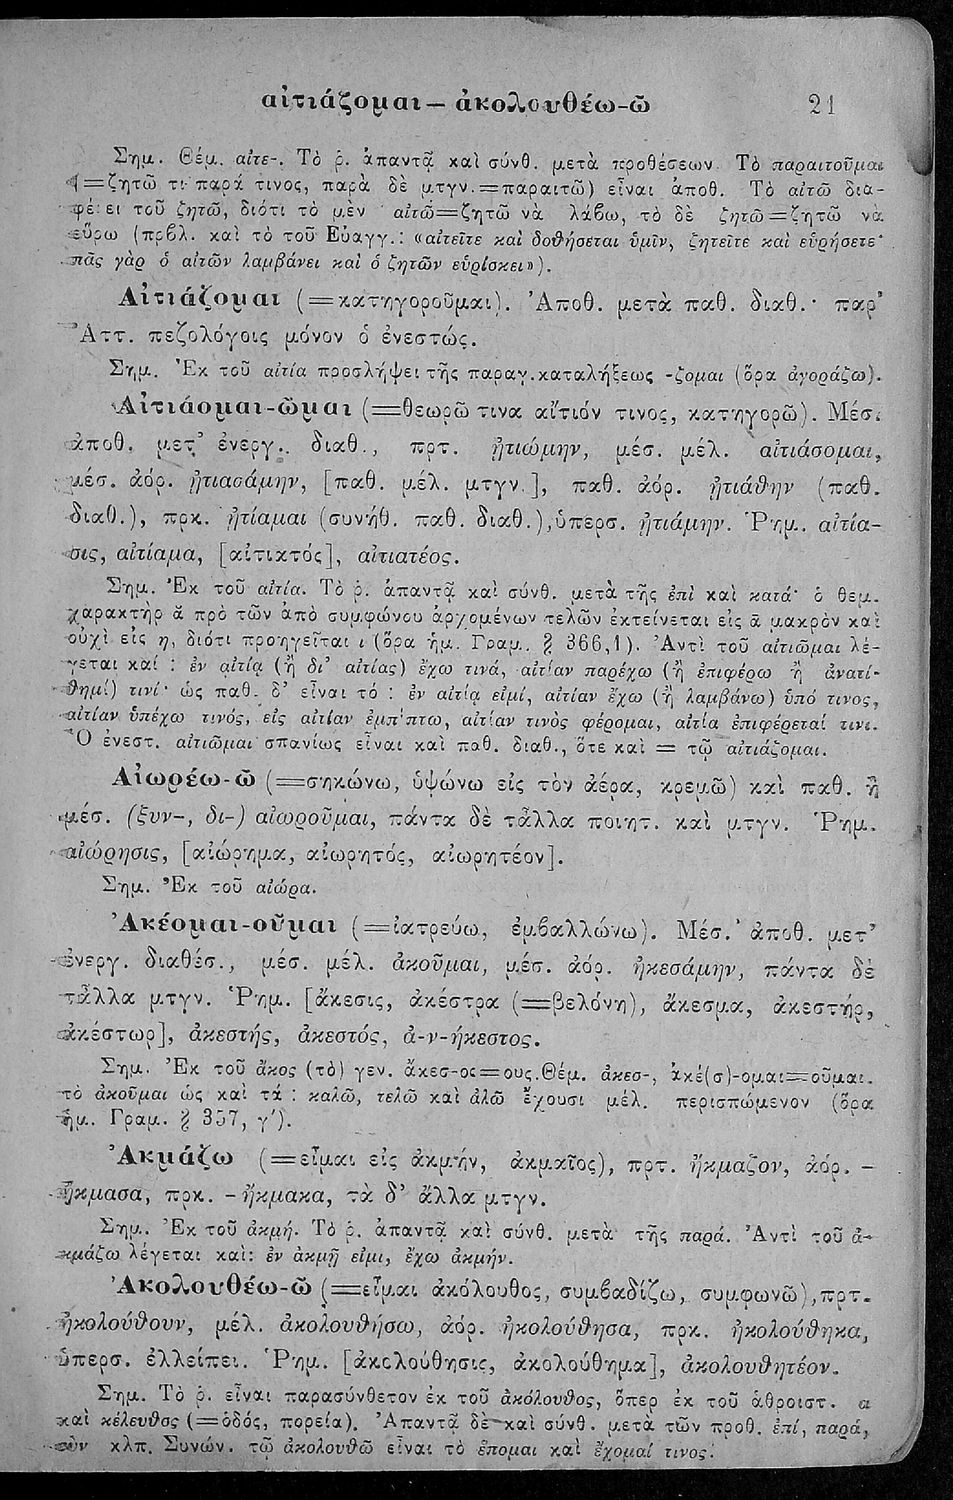 αἰτιάζομαι — ἀκολουθέω-ῶ 21
Σημ. Θέμ. αἰτε-. Τὸ ῥ. ἁπαντᾷ καὶ σύνθ. μετὰ προθέσεων. Τὸ παραιτοῦμαι
(=ζητῶ τι παρά τινος, παρὰ δὲ μτγν.=παραιτῶ) εἶναι ἀποθ. Τὸ αἰτῶ δια-
φέρει τοῦ ζητῶ, διότι τὸ μὲν αἰτῶ=ζητῶ νὰ λάβω, τὸ δὲ ζητῶ=ζητῶ νὰ
εὕρω (πρβλ. καὶ τὸ τοῦ Εὐαγγ.: «αἰτεῖτε καὶ δοθήσεται ὑμῖν, ζητεῖτε καὶ εὑρήσετε·
πᾶς γὰρ ὁ αἰτῶν λαμβάνει καὶ ὁ ζητῶν εὑρίσκει»).
Αἰτιάζομαι (=κατηγοροῦμαι). Ἀποθ. μετὰ παθ. διαθ.· παρ’
Ἀττ. πεζολόγοις μόνον ὁ ἐνεστώς.
Σημ. Ἐκ τοῦ αἰτία προσλήψει τῆς παραγ. καταλήξεως -ζομαι (ὅρα ἀγοράζω).
Αἰτιάομαι-ῶμαι (=θεωρῶ τινα αἴτιόν τινος, κατηγορῶ). Μέσ.
ἀποθ. μετ’ ἐνεργ. διαθ., πρτ. ᾐτιώμην, μέσ. μέλ. αἰτιάσομαι,
μέσ. ἀόρ. ᾐτιασάμην, [παθ. μέλ. μτγν.], παθ. ἀόρ. ᾐτιάθην (παθ.
διαθ.), πρκ. ᾐτίαμαι (συνήθ. παθ. διαθ.), ὑπερσ. ᾐτιάμην. Ῥημ. αἰτία-
σις, αἰτίαμα, [αἰτιατός], αἰτιατέος.
Σημ. Ἐκ τοῦ αἰτία. Τὸ ῥ. ἁπαντᾷ καὶ σύνθ. μετὰ τῆς ἐπὶ καὶ κατά· ὁ θεμ.
χαρακτὴρ ᾰ πρὸ τῶν ἀπὸ συμφώνου ἀρχομένων τελῶν ἐκτείνεται εἰς ᾱ μακρὸν καὶ
οὐχὶ εἰς η, διότι προηγεῖται ι (ὅρα ἡμ. Γραμ. § 366,1). Ἀντὶ τοῦ αἰτιῶμαι λέ-
γεται καί : ἐν αἰτίᾳ (ἢ δι’ αἰτίας) ἔχω τινά, αἰτίαν παρέχω (ἢ ἐπιφέρω ἢ ἀνατί-
θημί) τινί· ὡς παθ. δ’ εἶναι τό : ἐν αἰτίᾳ εἰμί, αἰτίαν ἔχω (ἢ λαμβάνω) ὑπό τινος,
αἰτίαν ὑπέχω τινός, εἰς αἰτίαν ἐμπίπτω, αἰτίαν τινὸς φέρομαι, αἰτία ἐπιφέρεταί τινι.
Ὁ ἐνεστ. αἰτιῶμαι σπανίως εἶναι καὶ παθ. διαθ., ὅτε καὶ = τῷ αἰτιάζομαι.
Αἰωρέω-ῶ (=σηκώνω, ὑψώνω εἰς τὸν ἀέρα, κρεμῶ) καὶ παθ. ἢ
μέσ. (ξυν-, δι-) αἰωροῦμαι, πάντα δὲ τἆλλα ποιητ. καὶ μτγν. Ῥημ.
αἰώρησις, [αἰώρημα, αἰωρητός, αἰωρητέον].
Σημ. Ἐκ τοῦ αἰώρα.
Ἀκέομαι-οῦμαι (=ἰατρεύω, ἐμβαλλώνω). Μέσ. ἀποθ. μετ’
ἐνεργ. διαθέσ., μέσ. μέλ. ἀκοῦμαι, μέσ. ἀόρ. ἠκεσάμην, πάντα δὲ
τἆλλα μτγν. Ῥημ. [ἄκεσις, ἀκέστρα (=βελόνη), ἄκεσμα, ἀκεστήρ,
ἀκέστωρ], ἀκεστής, ἀκεστός, ἀ-ν-ήκεστος.
Σημ. Ἐκ τοῦ ἄκος (τὸ) γεν. ἄκεσ-ος=ους. Θέμ. ἀκεσ-, ἀκέ(σ)-ομαι=οῦμαι.
τὸ ἀκοῦμαι ὡς καὶ τά : καλῶ, τελῶ καὶ ἀλῶ ἔχουσι μέλ. περισπώμενον (ὅρα
ἡμ. Γραμ. § 357, γ′).
Ἀκμάζω (=εἶμαι εἰς ἀκμήν, ἀκμαῖος), πρτ. ἤκμαζον, ἀόρ. -
ἤκμασα, πρκ. - ἤκμακα, τὰ δ’ ἄλλα μτγν.
Σημ. Ἐκ τοῦ ἀκμή. Τὸ ῥ. ἁπαντᾷ καὶ σύνθ. μετὰ τῆς παρά. Ἀντὶ τοῦ ἀ-
κμάζω λέγεται καί: ἐν ἀκμῇ εἰμι, ἔχω ἀκμήν.
Ἀκολουθέω-ῶ (=εἶμαι ἀκόλουθος, συμβαδίζω, συμφωνῶ), πρτ.
ἠκολούθουν, μέλ. ἀκολουθήσω, ἀόρ. ἠκολούθησα, πρκ. ἠκολούθηκα,
ὑπερσ. ἐλλείπει. Ῥημ. [ἀκολούθησις, ἀκολούθημα], ἀκολουθητέον.
Σημ. Τὸ ῥ. εἶναι παρασύνθετον ἐκ τοῦ ἀκόλουθος, ὅπερ ἐκ τοῦ ἀθροιστ. α
καὶ κέλευθος (=ὁδός, πορεία). Ἀπαντᾷ δὲ καὶ σύνθ. μετὰ τῶν προθ. ἐπί, παρά,
σὺν κλπ. Συνών. τῷ ἀκολουθῶ εἶναι τὸ ἕπομαι καὶ ἔχομαί τινος.